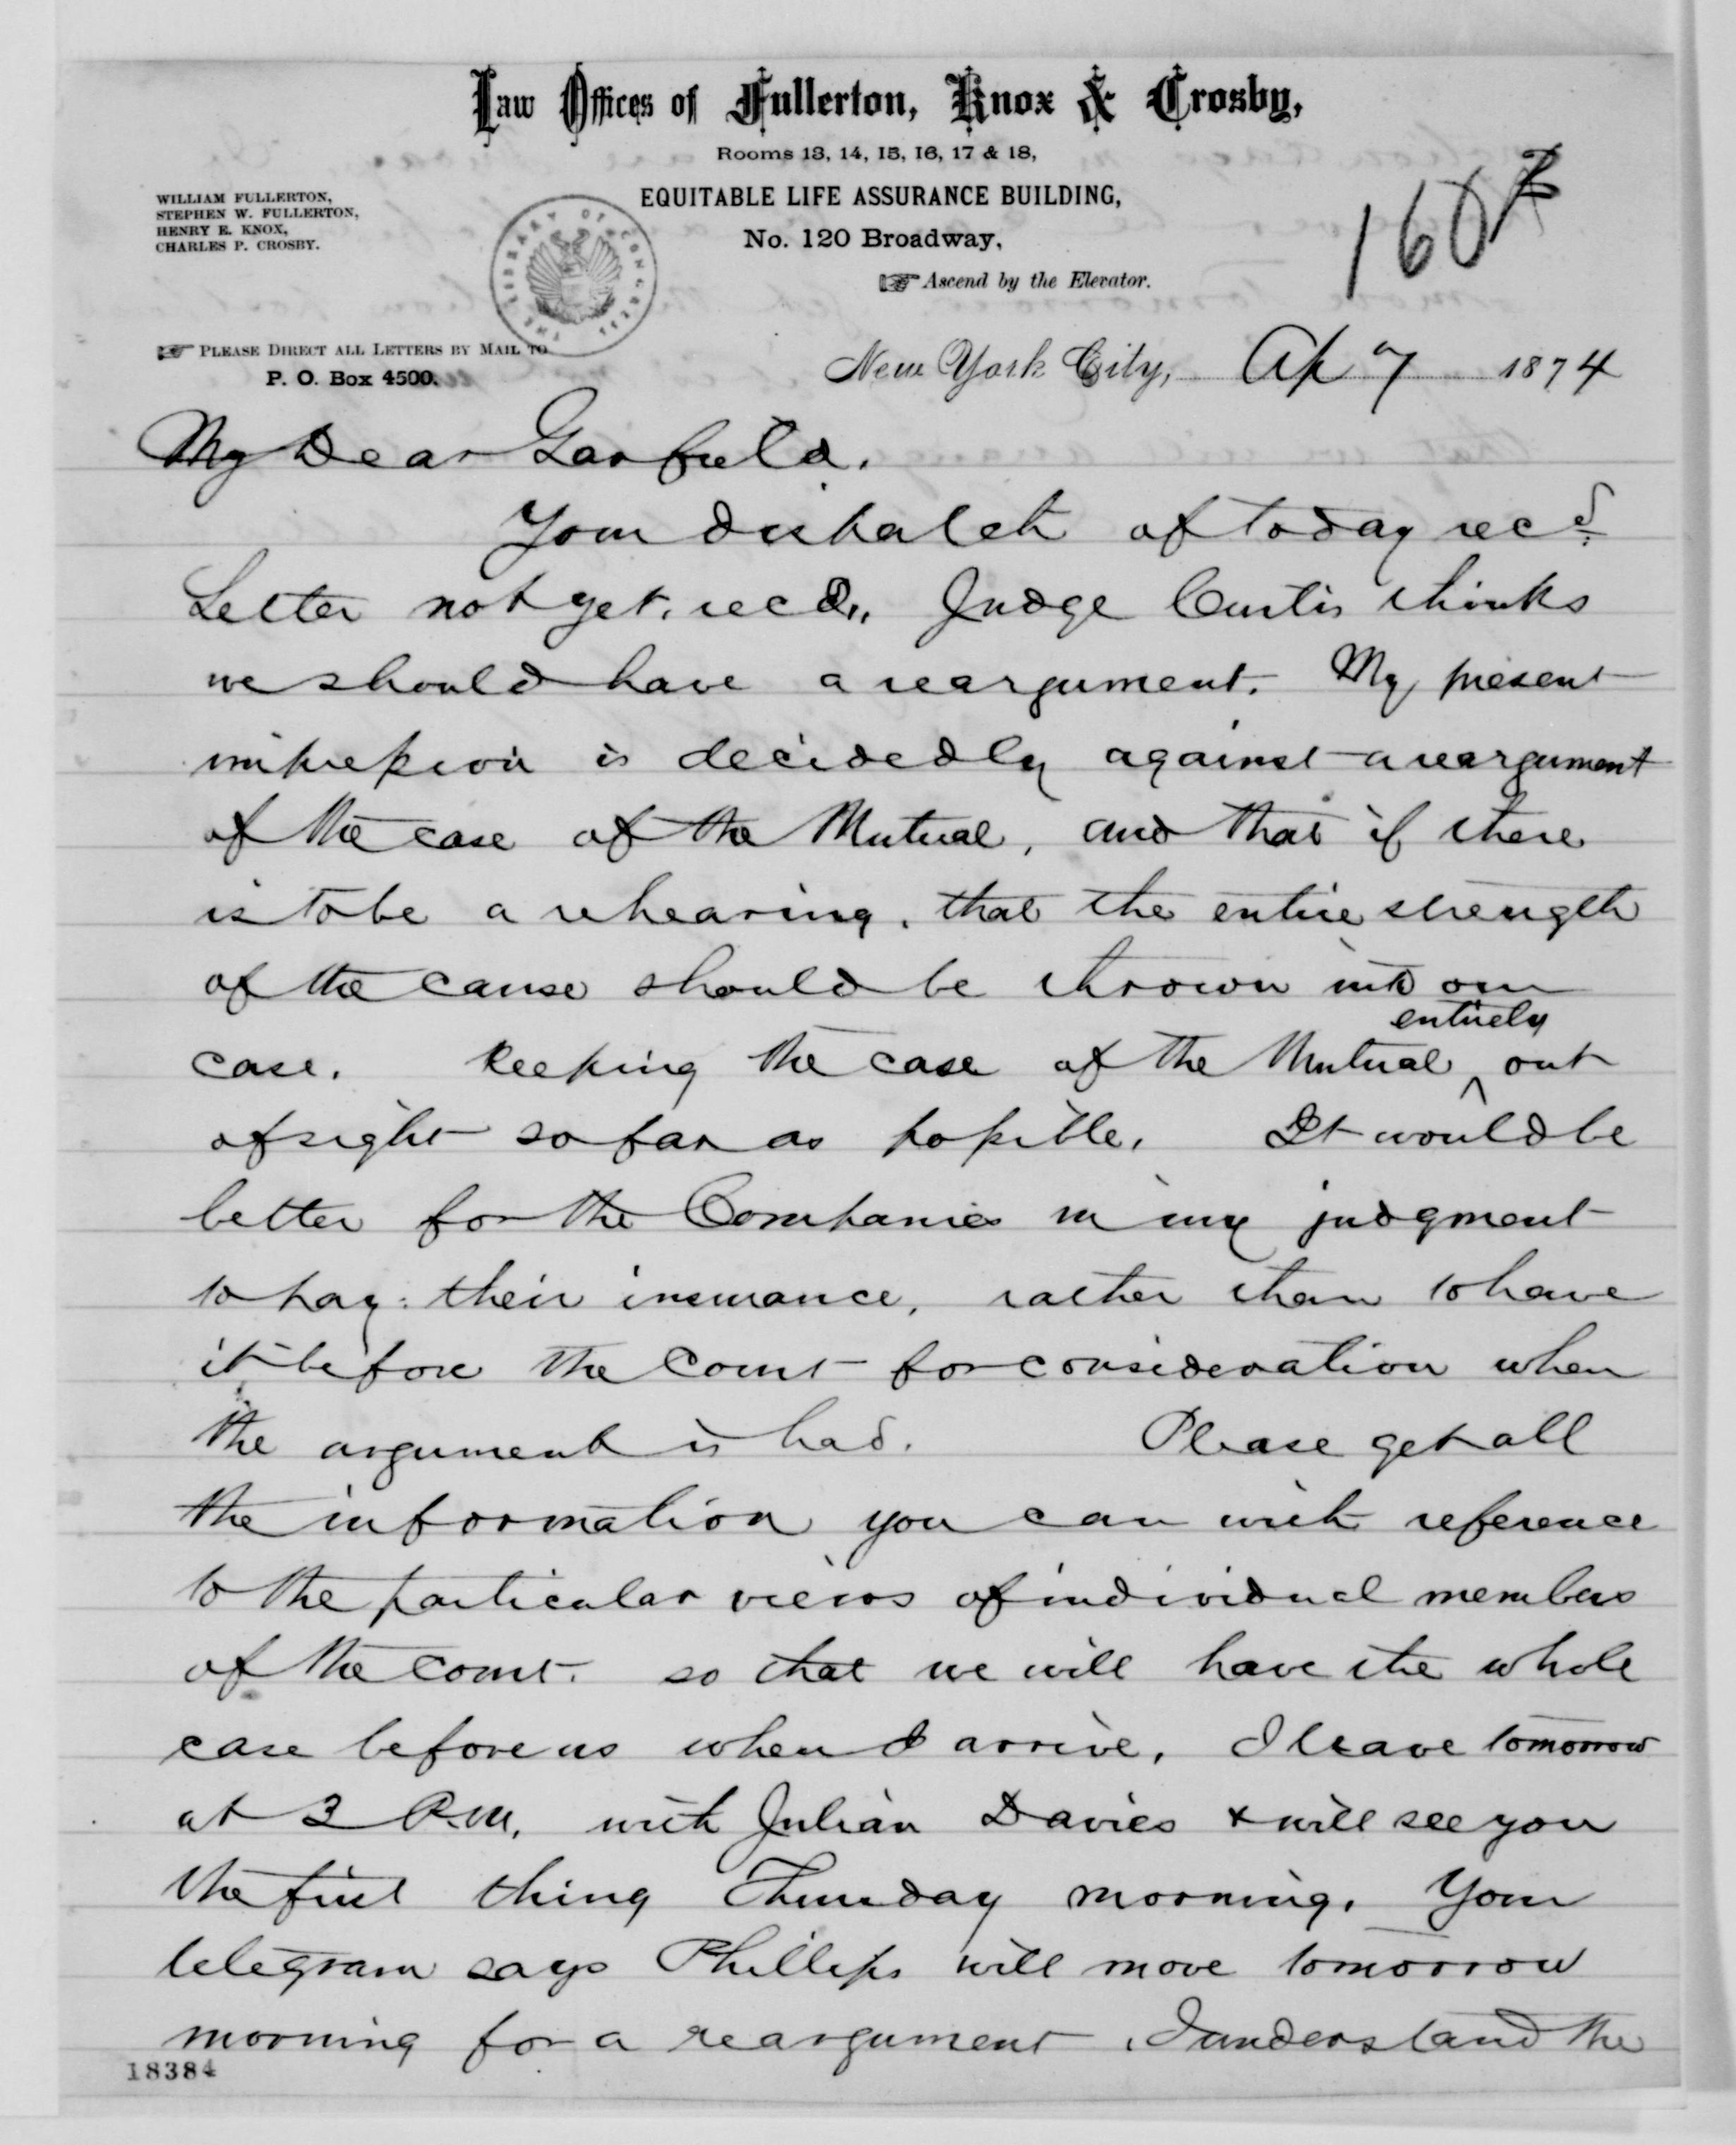 Law Offices of Fullerton, Knox & Crosby,
Rooms 13, 14, 15, 16, 17 & 18,
EQUITABLE LIFE ASSURANCE BUILDING,
No. 120 Broadway,
☞ Ascend by the Elevator.
WILLIAM FULLERTON,
STEPHEN W. FULLERTON,
HENRY E. KNOX,
CHARLES P. CROSBY.
THE LIBRARY OF CONGRESS
160
☞ PLEASE DIRECT ALL LETTERS BY MAIL TO
P. O. Box 4500.
New York City, Ap 7 1874
My Dear Garfield.
Your dispatch of today recd.
Letter not yet recd. Judge Curtis thinks
we should have a reargument. My present
impression is decidedly against a reargument
of the case of the Mutual, and that if there
is to be a rehearing, that the entire strength
of the cause should be thrown into our
case. Keeping the case of the Mutual ^ entirely out
of sight so far as possible. It would be
better for the Companies in my judgment
to pay their insurance, rather than to have
it before the Court for consideration when
the argument is had. Please get all
the information you can with reference
to the particular views of individual members
of the court. so that we will have the whole
case before us when I arrive. I leave tomorrow
at 3 P.M. with Julian Davies & will see you
the first thing Thursday morning. Your
telegram says Phillips will move tomorrow
morning for a reargument. I understand the
18384